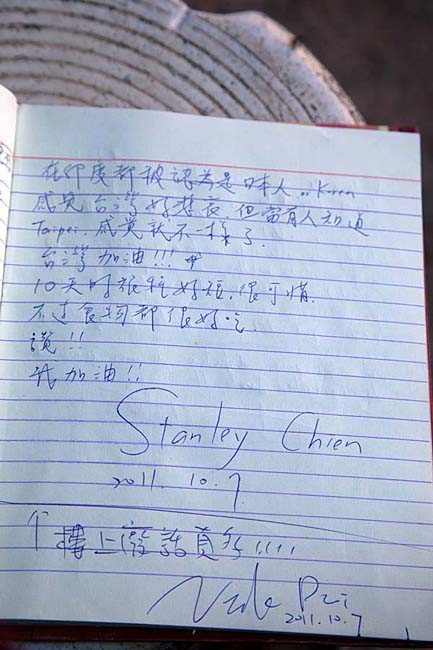 在印度都被認為是日本人 or Korea
感覺台灣好悲哀,但當有人知道
Taipei,感覺就不一樣了.
台灣加油!!!
10天的旅程好短,很可惜.
不過食物都很好吃
讚!!
我加油!!
Stanley Chien
2011. 10. 7
樓上廢話真多!!!!
2011.10.7